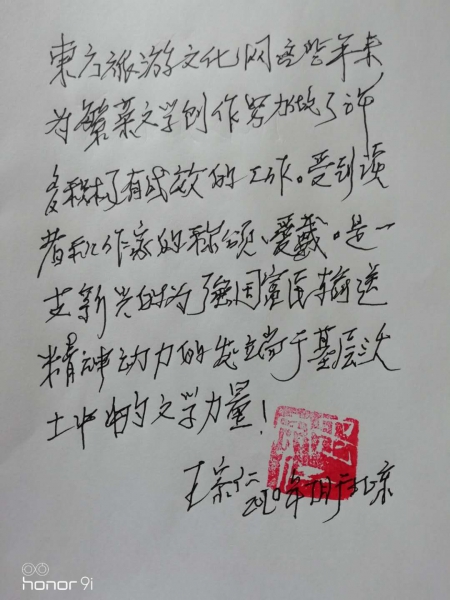 東方旅游文化网这些年来
为繁荣文学创作努力做了许
多积极有成效的工作。受到读
者和作家的称颂、爱戴。是一
支新兴的为强国富民输送
精神动力的发端于基层沃
土中的文学力量！
王宗仁
2020年7月于北京
honor 9i